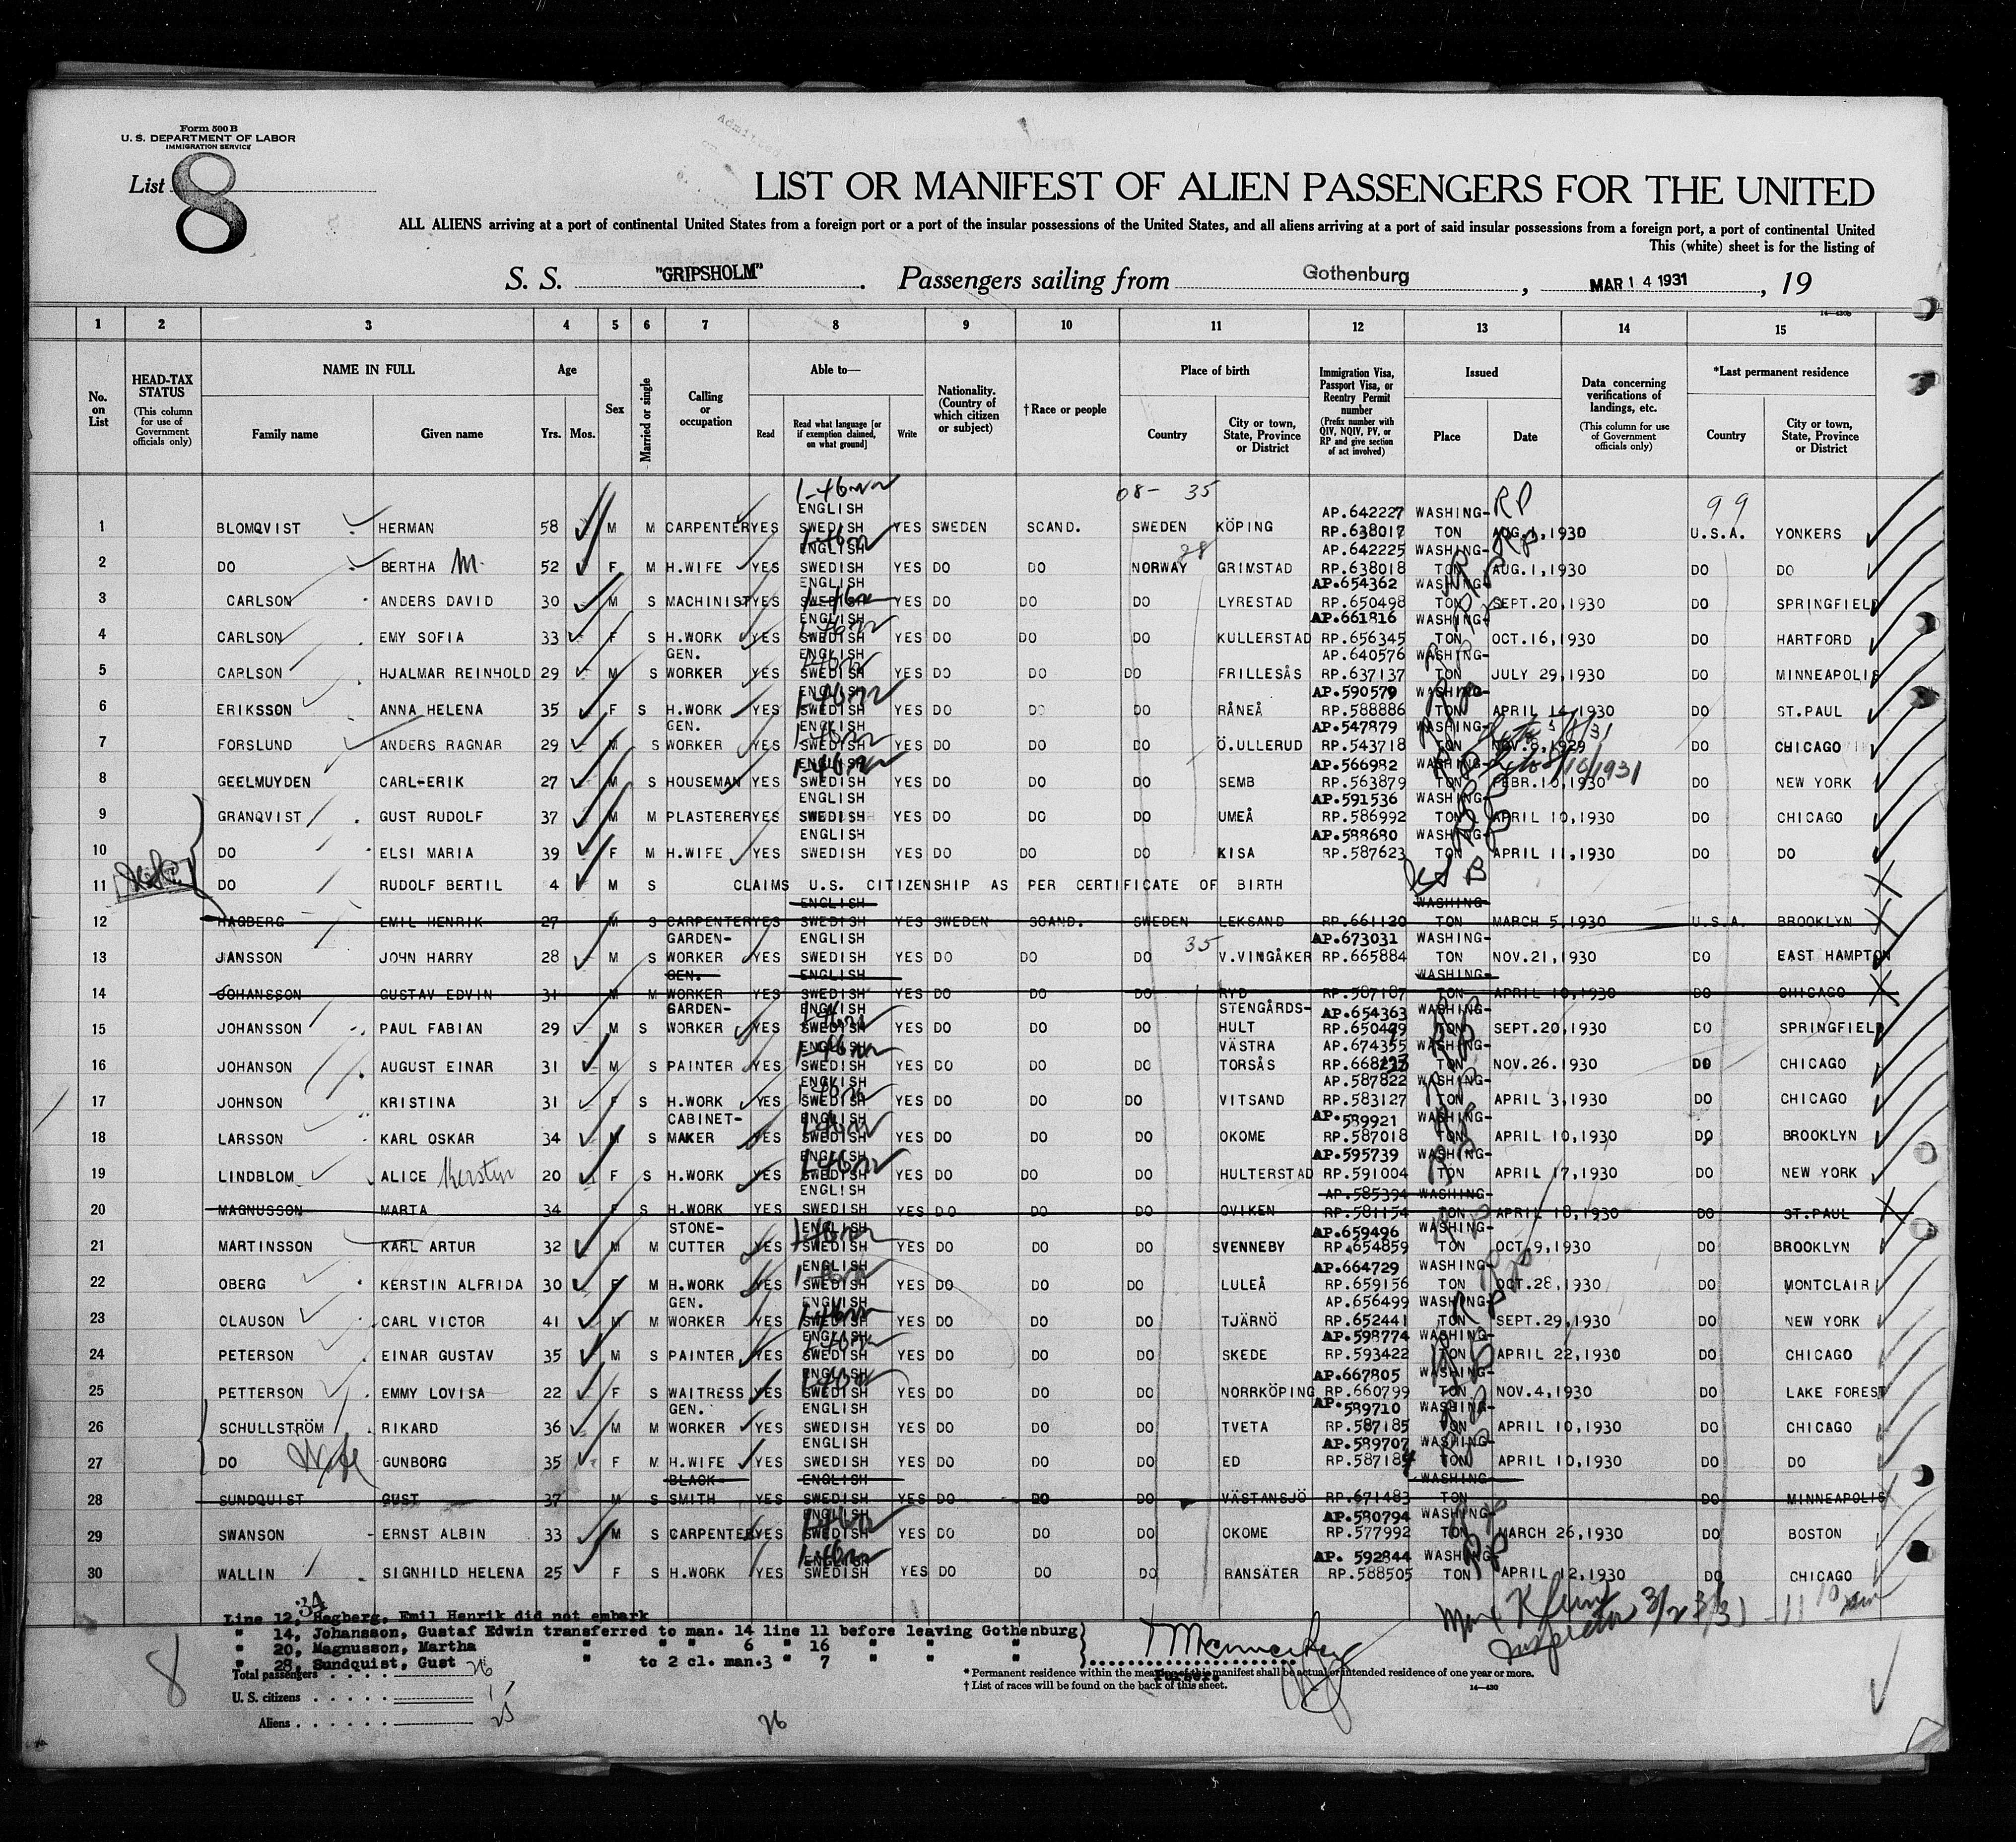 Form 500 B
U. S. DEPARTMENT OF LABOR
IMMIGRATION SERVICE
List 8
Admitted
LIST OR MANIFEST OF ALIEN PASSENGERS FOR THE UNITED
ALL ALIENS arriving at a port of continental United States from a foreign port or a port of the insular possessions of the United States, and all aliens arriving at a port of said insular possessions from a foreign port, a port of continental United
This (white) sheet is for the listing of
S. S. "GRIPSHOLM". Passengers sailing from Gothenburg, MAR 14 1931, 19
14—430b
1 2 3 4 5 6 7 8 9 10 11 12 13 14 15
No. on List
HEAD-TAX STATUS (This column for use of Government officials only)
NAME IN FULL Family name Given name
Age Yrs. Mos.
Sex
Married or single
Calling or occupation
Able to— Read Read what language [or if exemption claimed, on what ground] Write
Nationality. (Country of which citizen or subject)
†Race or people
Place of birth Country City or town, State, Province or District
Immigration Visa, Passport Visa, or Reentry Permit number (Prefix number with QIV, NQIV, PV, or RP and give section of act involved)
Issued Place Date
Data concerning verifications of landings, etc. (This column for use of Government officials only)
*Last permanent residence Country City or town, State, Province or District
08- 35 RP 99
ENGLISH AP.642227 WASHING-
1 BLOMQVIST HERMAN 58 M M CARPENTER YES SWEDISH YES SWEDEN SCAND. SWEDEN KÖPING RP.638017 TON AUG.1,1930 U.S.A. YONKERS
ENGLISH 28 AP.642225 WASHING-
2 DO BERTHA M. 52 F M H.WIFE YES SWEDISH YES DO DO NORWAY GRIMSTAD RP.638018 TON AUG.1,1930 DO DO
ENGLISH AP.654362 WASHING-
3 CARLSON ANDERS DAVID 30 M S MACHINIST YES SWEDISH YES DO DO DO LYRESTAD RP.650498 TON SEPT.20,1930 DO SPRINGFIELD
ENGLISH AP.661816 WASHING-
4 CARLSON EMY SOFIA 33 F S H.WORK YES SWEDISH YES DO DO DO KULLERSTAD RP.656345 TON OCT.16,1930 DO HARTFORD
GEN. ENGLISH AP.640576 WASHING-
5 CARLSON HJALMAR REINHOLD 29 M S WORKER YES SWEDISH YES DO DO DO FRILLESÅS RP.637137 TON JULY 29,1930 DO MINNEAPOLIS
ENGLISH AP.590579 WASHING-
6 ERIKSSON ANNA HELENA 35 F S H.WORK YES SWEDISH YES DO DO DO RÅNEÅ RP.588886 TON APRIL 14,1930 DO ST.PAUL
GEN. ENGLISH AP.547879 WASHING-
7 FORSLUND ANDERS RAGNAR 29 M S WORKER YES SWEDISH YES DO DO DO Ö.ULLERUD RP.543718 TON NOV.8,1929 DO CHICAGO
ENGLISH AP.566982 WASHING- 8/10/1931
8 GEELMUYDEN CARL-ERIK 27 M S HOUSEMAN YES SWEDISH YES DO DO DO SEMB RP.563879 TON FEBR.10,1930 DO NEW YORK
ENGLISH AP.591536 WASHING-
9 GRANQVIST GUST RUDOLF 37 M M PLASTERER YES SWEDISH YES DO DO DO UMEÅ RP.586992 TON APRIL 10,1930 DO CHICAGO
ENGLISH AP.588680 WASHING-
10 DO ELSI MARIA 39 F M H.WIFE YES SWEDISH YES DO DO DO KISA RP.587623 TON APRIL 11,1930 DO DO
11 DO RUDOLF BERTIL 4 M S CLAIMS U.S. CITIZENSHIP AS PER CERTIFICATE OF BIRTH
ENGLISH WASHING-
12 HAGBERG EMIL HENRIK 27 M S CARPENTER YES SWEDISH YES SWEDEN SCAND. SWEDEN LEKSAND RP.661120 TON MARCH 5,1930 U.S.A. BROOKLYN
GARDEN- ENGLISH 35 AP.673031 WASHING-
13 JANSSON JOHN HARRY 28 M S WORKER YES SWEDISH YES DO DO DO V.VINGÅKER RP.665884 TON NOV.21,1930 DO EAST HAMPTON
GEN. ENGLISH WASHING-
14 JOHANSSON GUSTAV EDVIN 31 M M WORKER YES SWEDISH YES DO DO DO RYD RP.587187 TON APRIL 10,1930 DO CHICAGO
GARDEN- ENGLISH STENGÅRDS- AP.654363 WASHING-
15 JOHANSSON PAUL FABIAN 29 M S WORKER YES SWEDISH YES DO DO DO HULT RP.650499 TON SEPT.20,1930 DO SPRINGFIELD
ENGLISH VÄSTRA AP.674355 WASHING-
16 JOHANSON AUGUST EINAR 31 M S PAINTER YES SWEDISH YES DO DO DO TORSÅS TON NOV.26.1930 DO CHICAGO
ENGLISH AP.587822 WASHING-
17 JOHNSON KRISTINA 31 F S H.WORK YES SWEDISH YES DO DO DO VITSAND RP.583127 TON APRIL 3,1930 DO CHICAGO
CABINET- ENGLISH AP.589921 WASHING-
18 LARSSON KARL OSKAR 34 M S MAKER YES SWEDISH YES DO DO DO OKOME RP.587018 TON APRIL 10,1930 DO BROOKLYN
ENGLISH AP.595739 WASHING-
19 LINDBLOM ALICE Kerstin 20 F S H.WORK YES SWEDISH YES DO DO DO HULTERSTAD RP.591004 TON APRIL 17,1930 DO NEW YORK
ENGLISH AP.585394 WASHING-
20 MAGNUSSON MARTA 34 F S H.WORK YES SWEDISH YES DO DO DO OVIKEN RP.581154 TON APRIL 18,1930 DO ST.PAUL
STONE- ENGLISH AP.659496 WASHING-
21 MARTINSSON KARL ARTUR 32 M M CUTTER YES SWEDISH YES DO DO DO SVENNEBY RP.654859 TON OCT.9,1930 DO BROOKLYN
ENGLISH AP.664729 WASHING-
22 OBERG KERSTIN ALFRIDA 30 F M H.WORK YES SWEDISH YES DO DO DO LULEÅ RP.659156 TON OCT.28,1930 DO MONTCLAIR
GEN. ENGLISH AP.656499 WASHING-
23 OLAUSON CARL VICTOR 41 M M WORKER YES SWEDISH YES DO DO DO TJÄRNÖ RP.652441 TON SEPT.29,1930 DO NEW YORK
ENGLISH AP.598774 WASHING-
24 PETERSON EINAR GUSTAV 35 M S PAINTER YES SWEDISH YES DO DO DO SKEDE RP.593422 TON APRIL 22,1930 DO CHICAGO
ENGLISH AP.667805 WASHING-
25 PETTERSON EMMY LOVISA 22 F S WAITRESS YES SWEDISH YES DO DO DO NORRKÖPING RP.660799 TON NOV.4,1930 DO LAKE FOREST
GEN. ENGLISH AP.589710 WASHING-
26 SCHULLSTRÖM RIKARD 36 M M WORKER YES SWEDISH YES DO DO DO TVETA RP.587185 TON APRIL 10,1930 DO CHICAGO
ENGLISH AP.589707 WASHING-
27 DO Wife GUNBORG 35 F M H.WIFE YES SWEDISH YES DO DO DO ED RP.587184 TON APRIL 10,1930 DO DO
BLACK- ENGLISH WASHING-
28 SUNDQUIST GUST 37 M S SMITH YES SWEDISH YES DO DO DO VÄSTANSJÖ RP.671483 TON DO MINNEAPOLIS
ENGLISH AP.580794 WASHING-
29 SWANSON ERNST ALBIN 33 M S CARPENTER YES SWEDISH YES DO DO DO OKOME RP.577992 TON MARCH 26,1930 DO BOSTON
ENGLISH AP. 592844 WASHING-
30 WALLIN SIGNHILD HELENA 25 F S H.WORK YES SWEDISH YES DO DO DO RANSÄTER RP.588505 TON APRIL 12,1930 DO CHICAGO
34
Line 12, Hagberg, Emil Henrik did not embark
" 14, Johansson, Gustaf Edwin transferred to man. 14 line 11 before leaving Gothenburg
" 20, Magnusson, Martha " " " 6 " 16 " " "
" 28, Sundquist, Gust " to 2 cl. man.3 " 7 " " "
Purser.
Inspector 3/23/31
8
Total passengers . . . . 26
U. S. citizens . . . . . 1
Aliens . . . . . . 25
26
* Permanent residence within the meaning of this manifest shall be actual or intended residence of one year or more.
† List of races will be found on the back of this sheet.
14—430